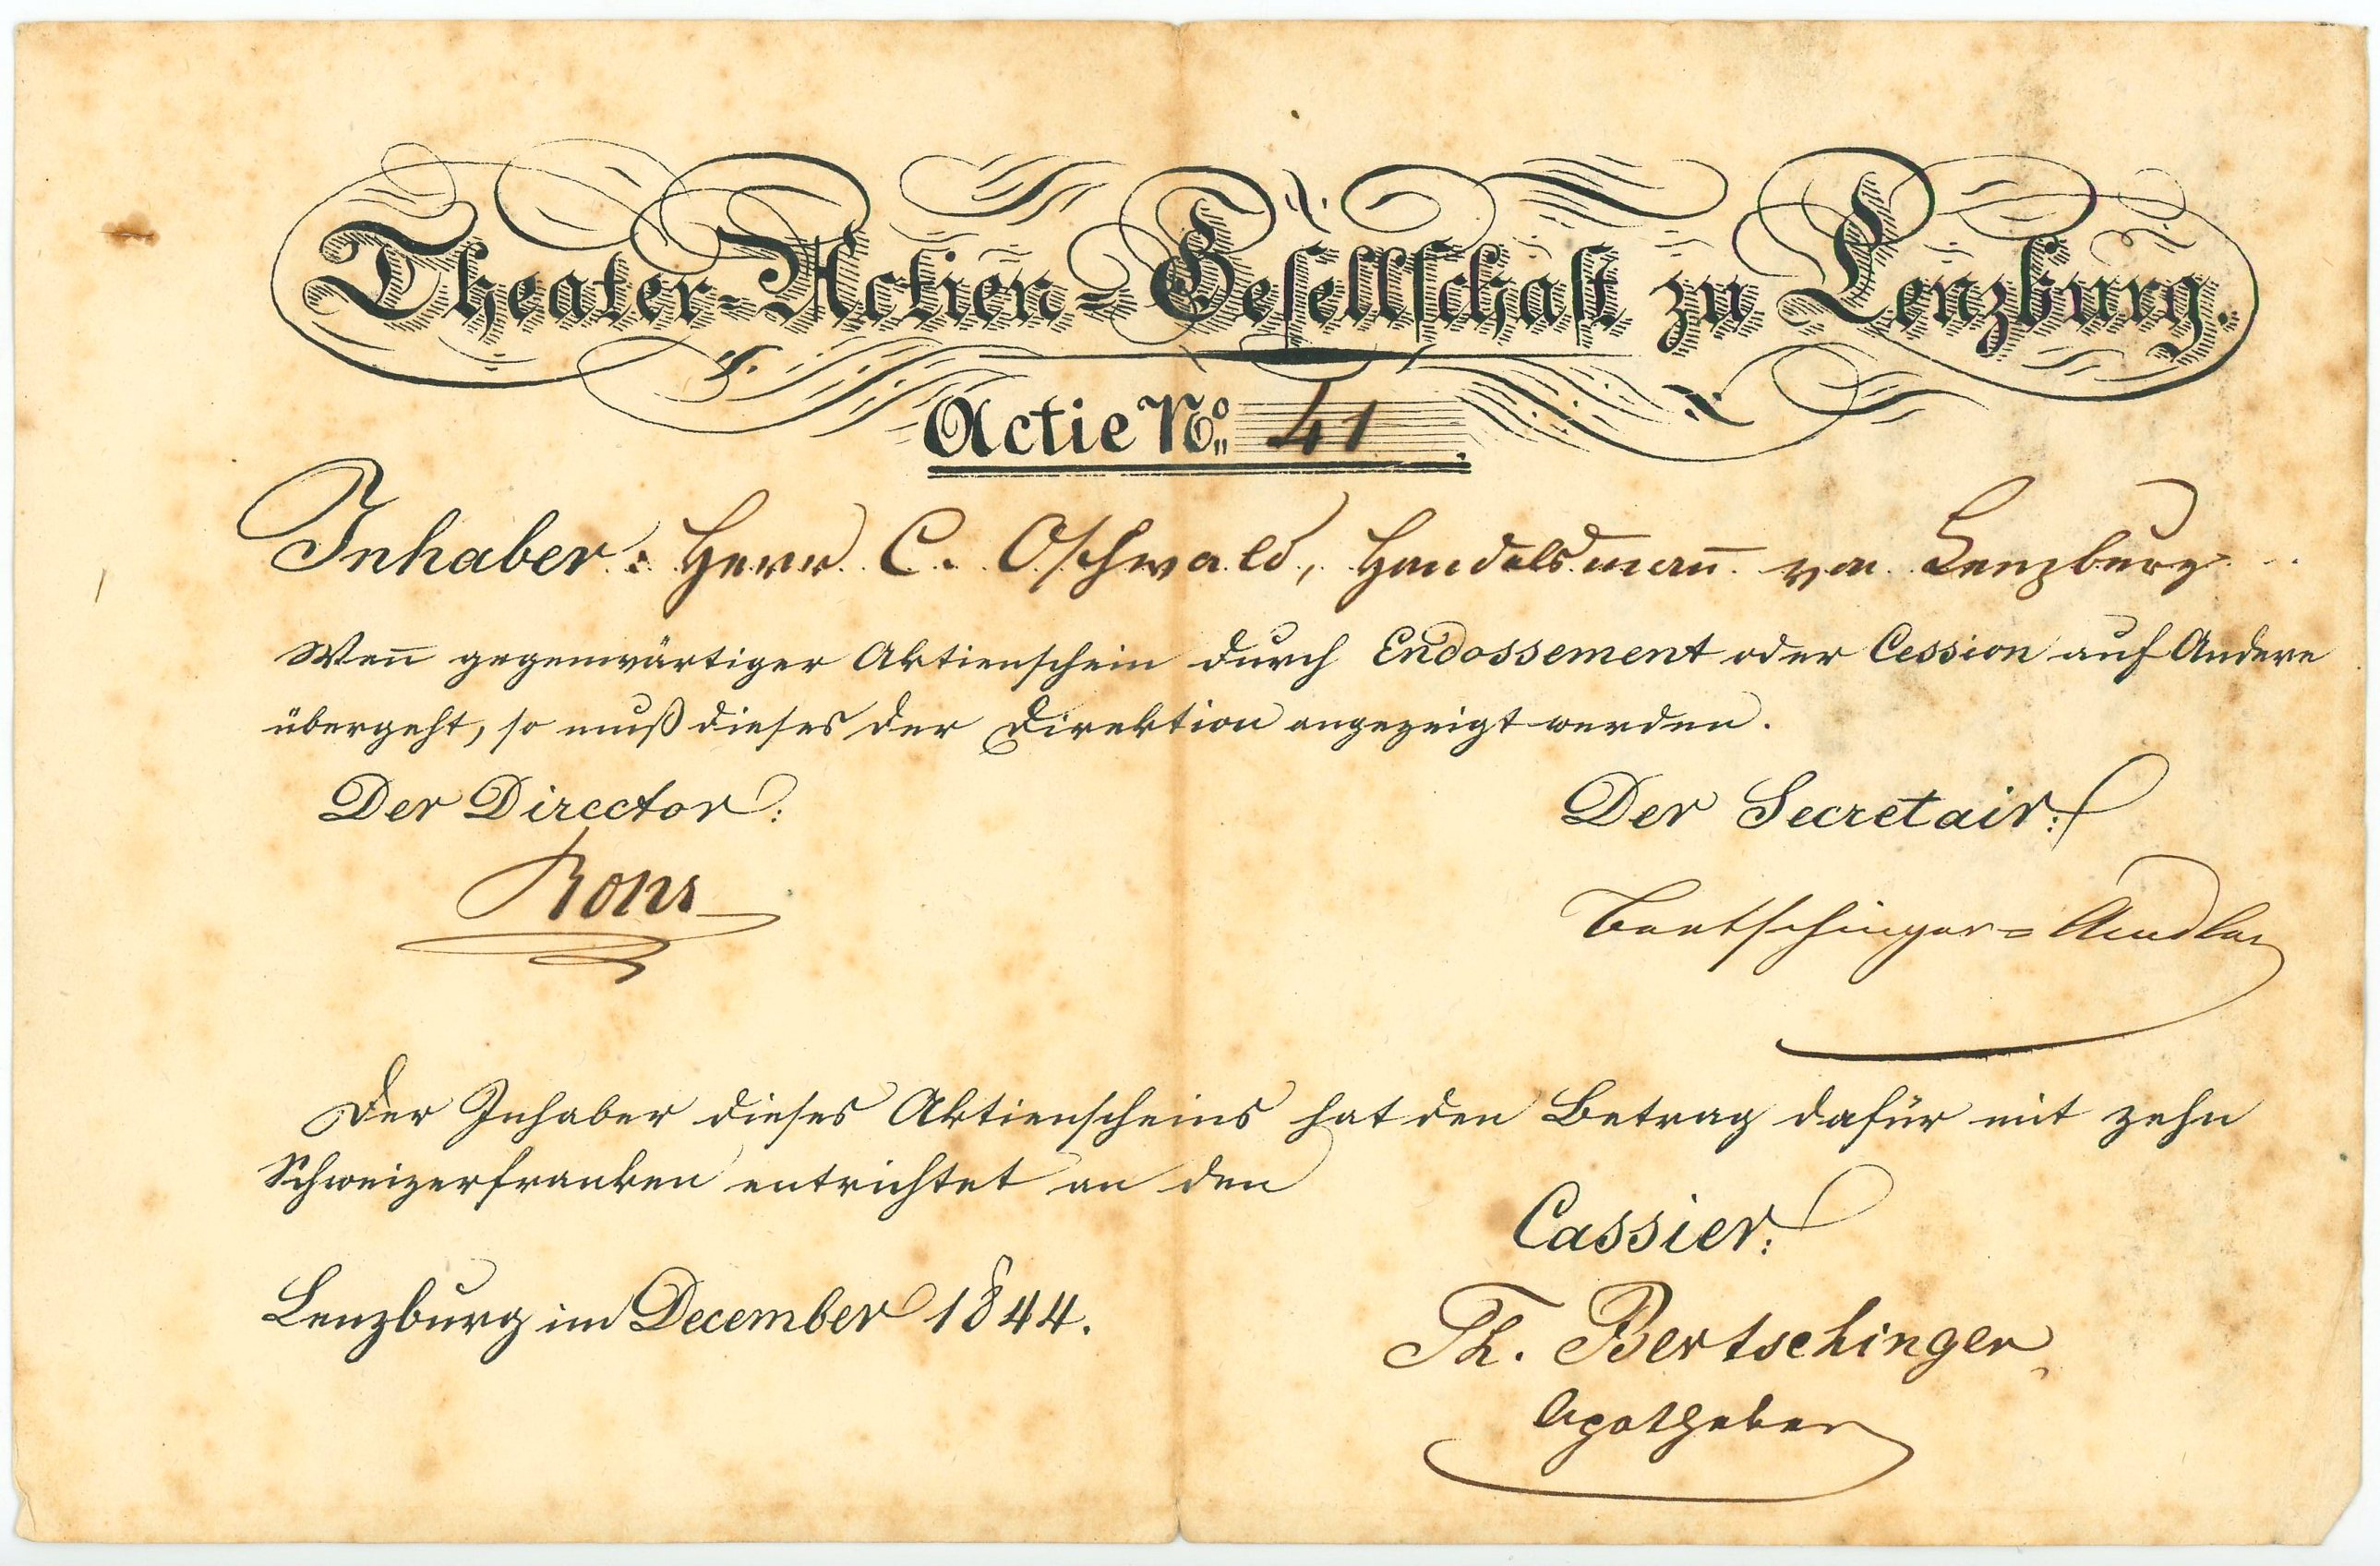 Theater-Actien-Gesellschaft zu Lenzburg.
Actie No. 41.
Inhaber: Herr C. Oschwald, Handelsmañ von Lenzburg
Weñ gegenwärtiger Aktienschein durch Endossement oder Cession auf Andere
übergeht, so muß dieses der Direktion angezeigt werden.
Der Director:
Der Secretair:
Bertschinger=Amsler
Der Inhaber dieses Aktienscheins hat den Betrag dafür mit zehn
Schweizerfranken entrichtet an den
Cassier:
Lenzburg im December 1844.
Th. Bertschinger
Apotheker